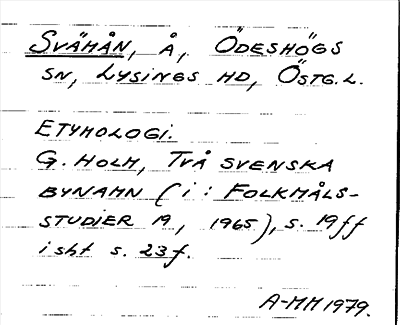 SVÄMÅN, Å, ÖDESHÖGS
SN, LYSINGS HD, ÖSTG.L.
ETYMOLOGI.
G. HOLM, TVÅ SVENSKA
BYNAMN (i: FOLKMÅLS-
STUDIER 19, 1965), s. 19 ff
i sht s. 23 f.
A-MM 1979.